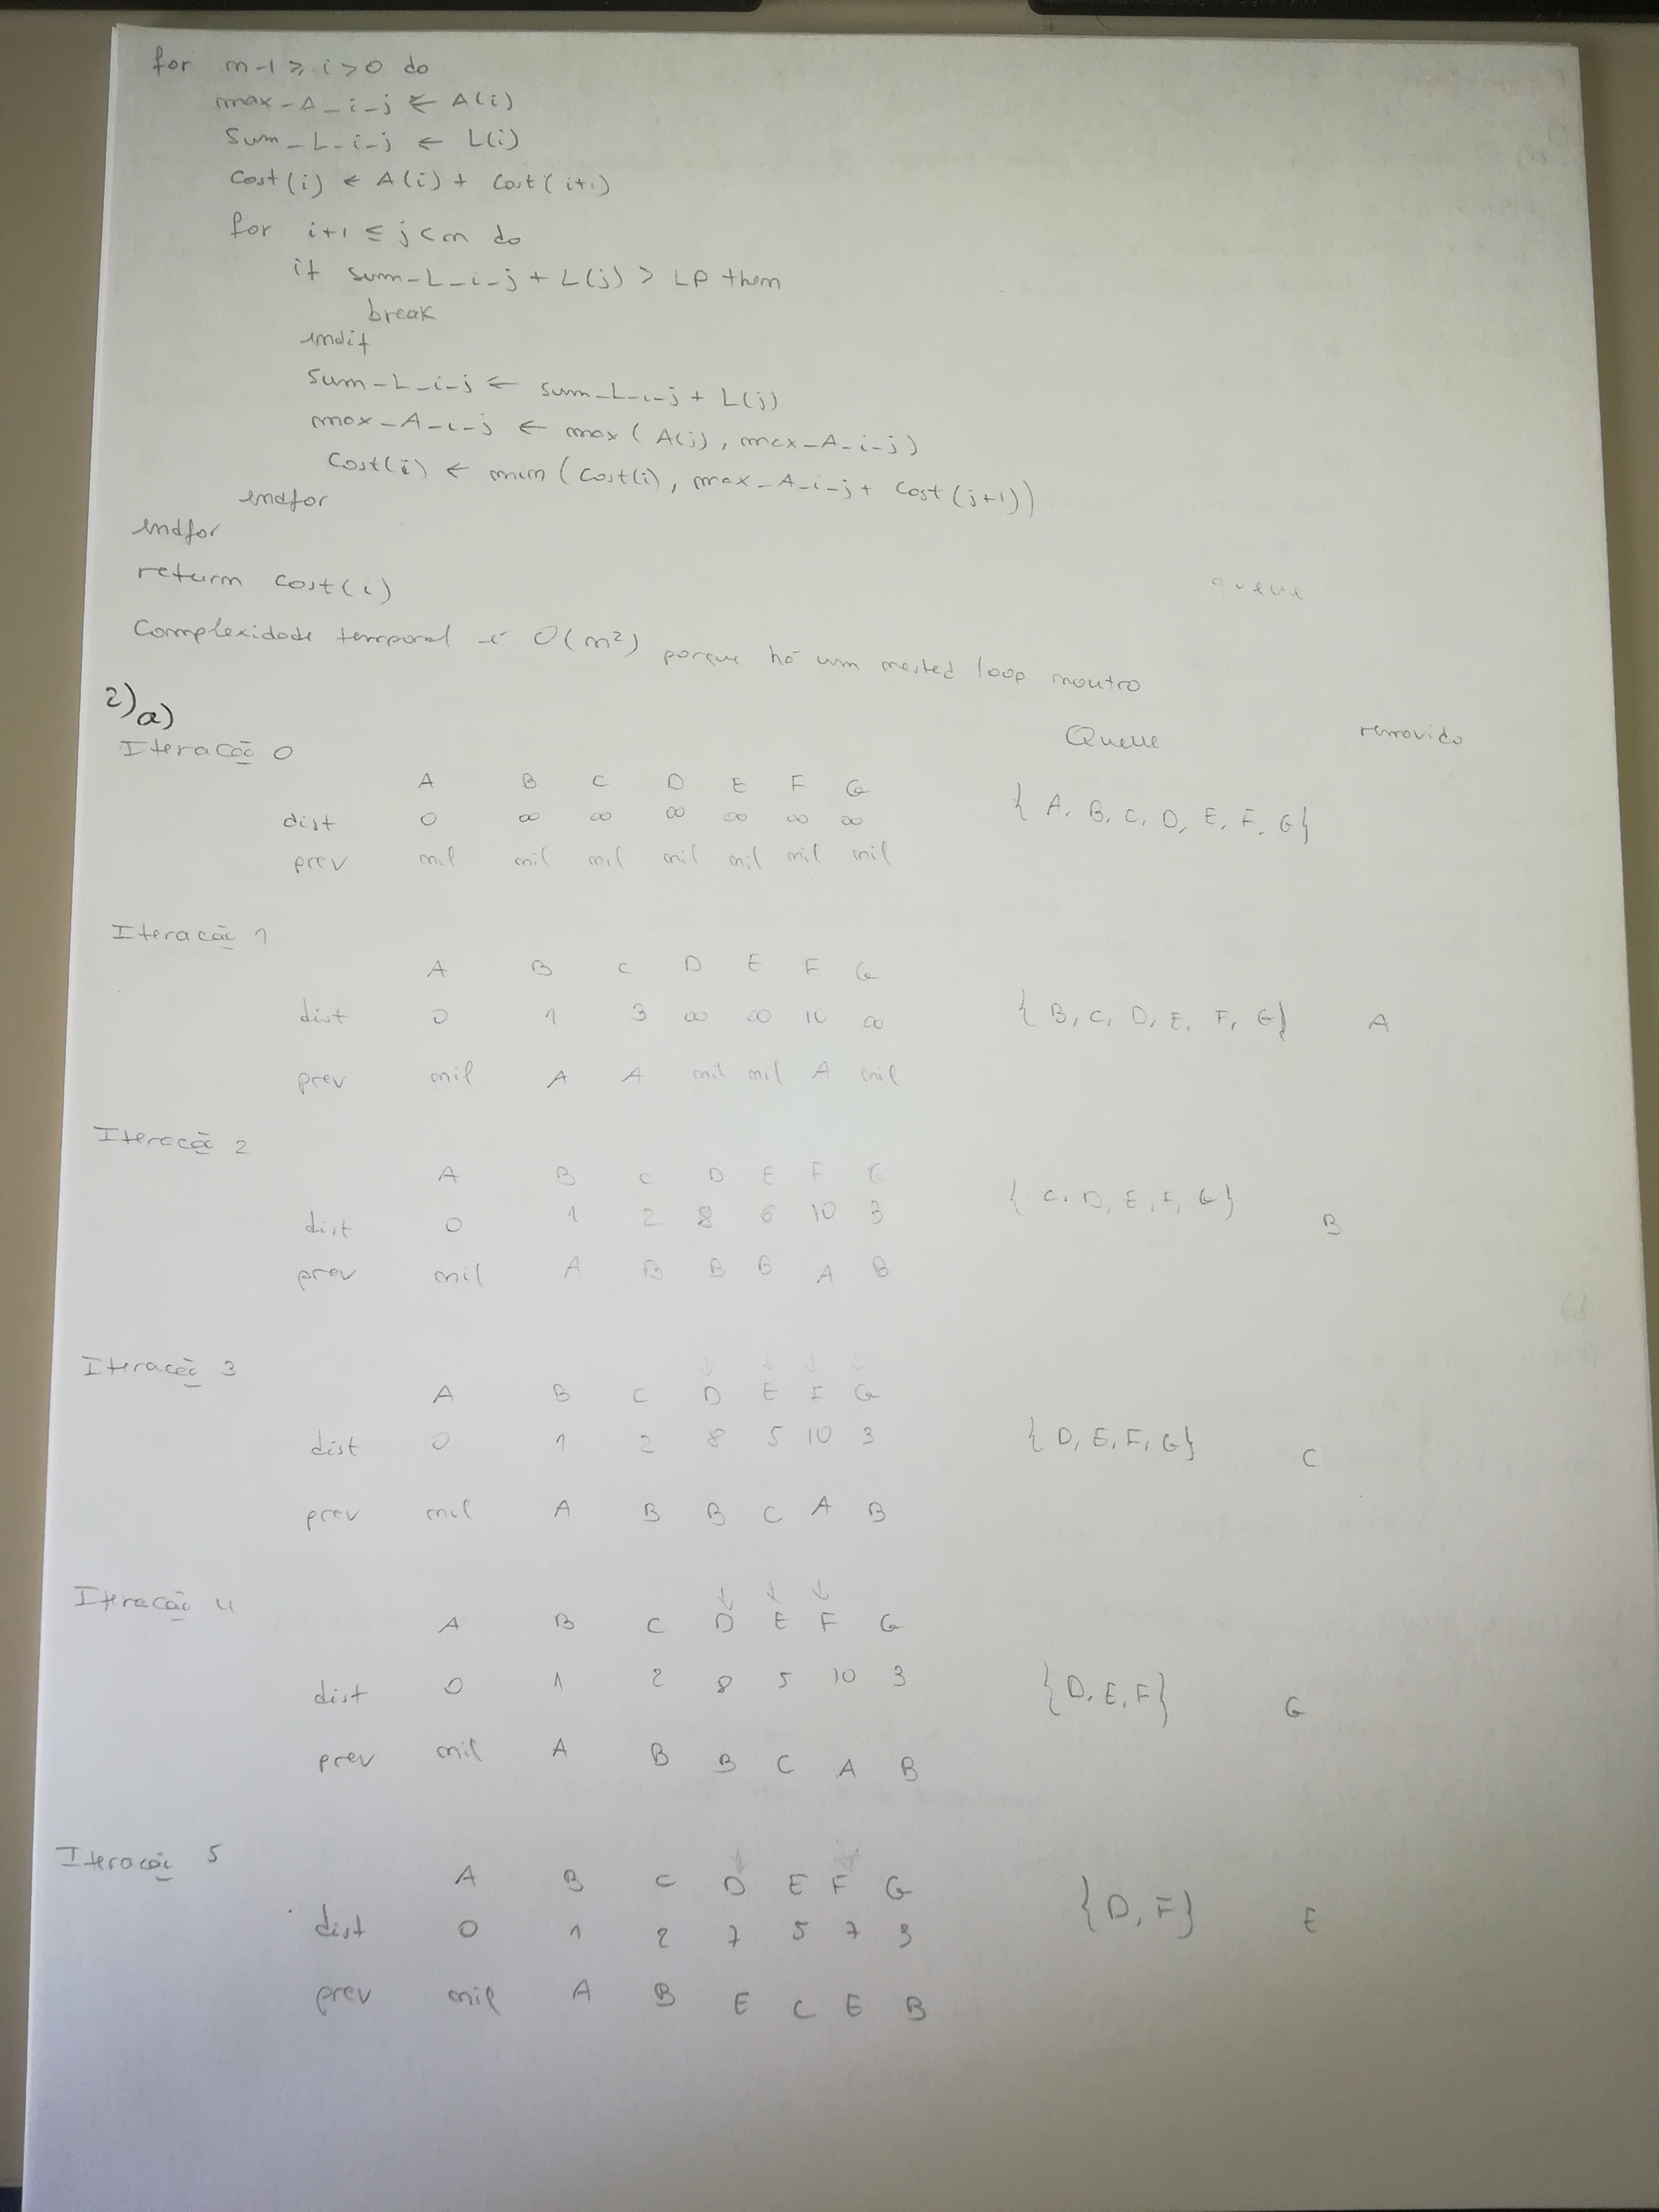 for n-1 ≥ i > 0 do
max-A-i-j ← A(i)
Sum-L-i-j ← L(i)
Cost(i) ← A(i) + Cost(i+1)
for i+1 ≤ j < n do
if sum-L-i-j + L(j) > LP then
break
endif
sum-L-i-j ← sum-L-i-j + L(j)
max-A-i-j ← max(A(j), max-A-i-j)
Cost(i) ← min(Cost(i), max-A-i-j + Cost(j+1))
endfor
endfor
return Cost(i)
queue
Complexidade temporal é O(n²) porque há um nested loop noutro
2)a)
Queue removido
Iteração 0
A B C D E F G
dist 0 ∞ ∞ ∞ ∞ ∞ ∞ { A, B, C, D, E, F, G}
prev nil nil nil nil nil nil nil
Iteração 1
A B C D E F G
dist 0 1 3 ∞ ∞ 10 ∞ { B, C, D, E, F, G} A
prev nil A A nil nil A nil
Iteração 2
A B C D E F G
dist 0 1 2 8 6 10 3 { C, D, E, F, G} B
prev nil A B B B A B
Iteração 3
↓ ↓ ↓ ↓
A B C D E F G
dist 0 1 2 8 5 10 3 { D, E, F, G} C
prev nil A B B C A B
Iteração 4
↓ ↓ ↓
A B C D E F G
dist 0 1 2 8 5 10 3 {D, E, F} G
prev nil A B B C A B
Iteração 5
A B C D E F G
dist 0 1 2 7 5 7 3 {D, F} E
prev nil A B E C E B